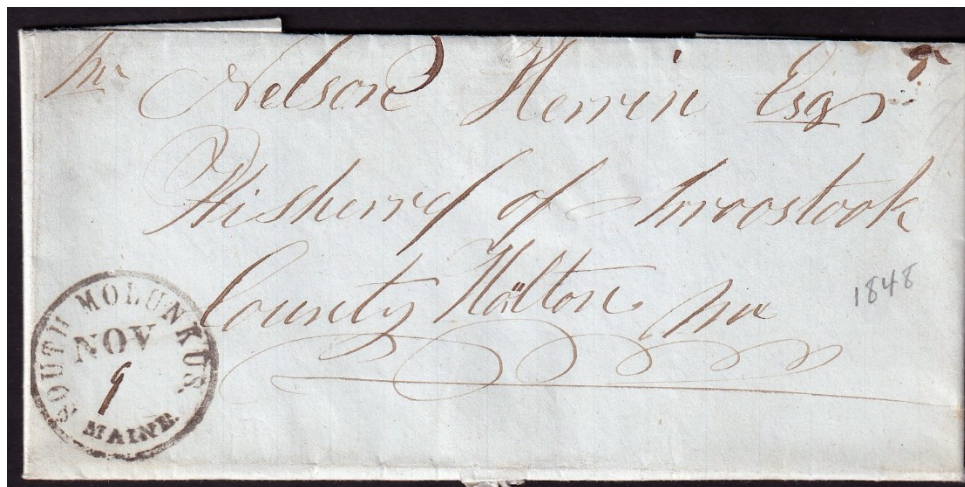 Mr Nelson Herrin Esqr
Hi sherrif of Arroostook
County Holton Me
1848
SOUTH MOLUNKUS
NOV
9
MAINE.